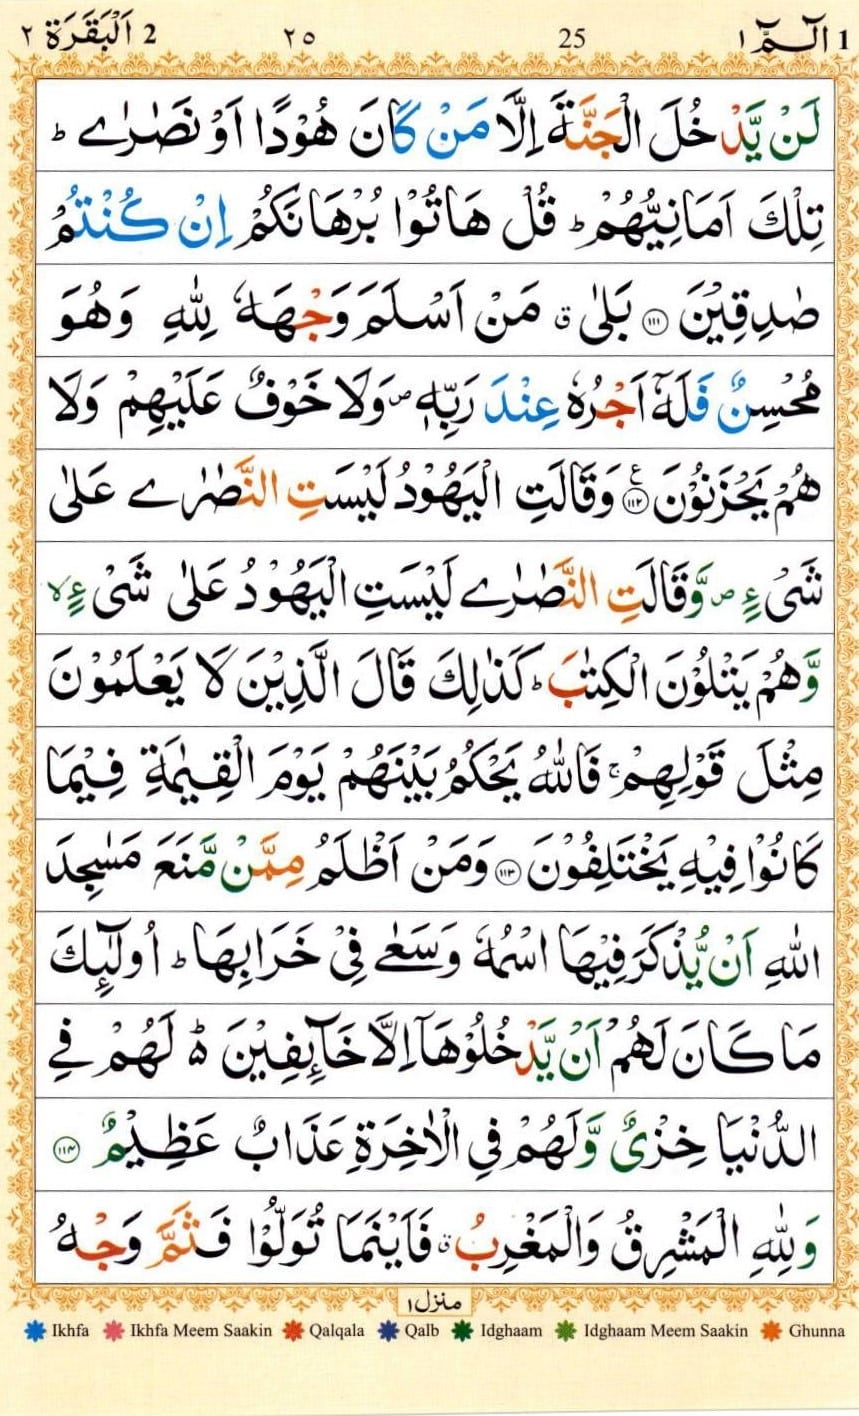 1 الٓمّٓ ١ 25 ٢٥ 2 اَلْبَقَرَة ٢
لَنْ يَّدْخُلَ الْجَنَّةَ اِلَّا مَنْ كَانَ هُوْدًا اَوْ نَصٰرٰے ؕ
تِلْكَ اَمَانِيُّهُمْ ؕ قُلْ هَاتُوْا بُرْهَانَكُمْ اِنْ كُنْتُمْ
صٰدِقِيْنَ ﴿١١١﴾ بَلٰی ۗ مَنْ اَسْلَمَ وَجْهَهٗ لِلّٰهِ وَهُوَ
مُحْسِنٌ فَلَهٗۤ اَجْرُهٗ عِنْدَ رَبِّهٖ ۪ وَلَا خَوْفٌ عَلَيْهِمْ وَلَا
هُمْ يَحْزَنُوْنَ ﴿١١٢﴾ ع وَقَالَتِ الْيَهُوْدُ لَيْسَتِ النَّصٰرٰے عَلٰی
شَیْءٍ ۪ وَّقَالَتِ النَّصٰرٰے لَيْسَتِ الْيَهُوْدُ عَلٰی شَیْءٍ ۙ
وَّهُمْ يَتْلُوْنَ الْكِتٰبَ ؕ كَذٰلِكَ قَالَ الَّذِيْنَ لَا يَعْلَمُوْنَ
مِثْلَ قَوْلِهِمْ ۚ فَاللّٰهُ يَحْكُمُ بَيْنَهُمْ يَوْمَ الْقِيٰمَةِ فِيْمَا
كَانُوْا فِيْهِ يَخْتَلِفُوْنَ ﴿١١٣﴾ وَمَنْ اَظْلَمُ مِمَّنْ مَّنَعَ مَسٰجِدَ
اللّٰهِ اَنْ يُّذْكَرَ فِيْهَا اسْمُهٗ وَسَعٰے فِیْ خَرَابِهَا ؕ اُولٰٓئِكَ
مَا كَانَ لَهُمْ اَنْ يَّدْخُلُوْهَاۤ اِلَّا خَآئِفِيْنَ ۬ؕ لَهُمْ فِی
الدُّنْيَا خِزْیٌ وَّلَهُمْ فِی الْاٰخِرَةِ عَذَابٌ عَظِيْمٌ ﴿١١٤﴾
وَلِلّٰهِ الْمَشْرِقُ وَالْمَغْرِبُ ۗ فَاَيْنَمَا تُوَلُّوْا فَثَمَّ وَجْهُ
منزل ١
Ikhfa Ikhfa Meem Saakin Qalqala Qalb Idghaam Idghaam Meem Saakin Ghunna